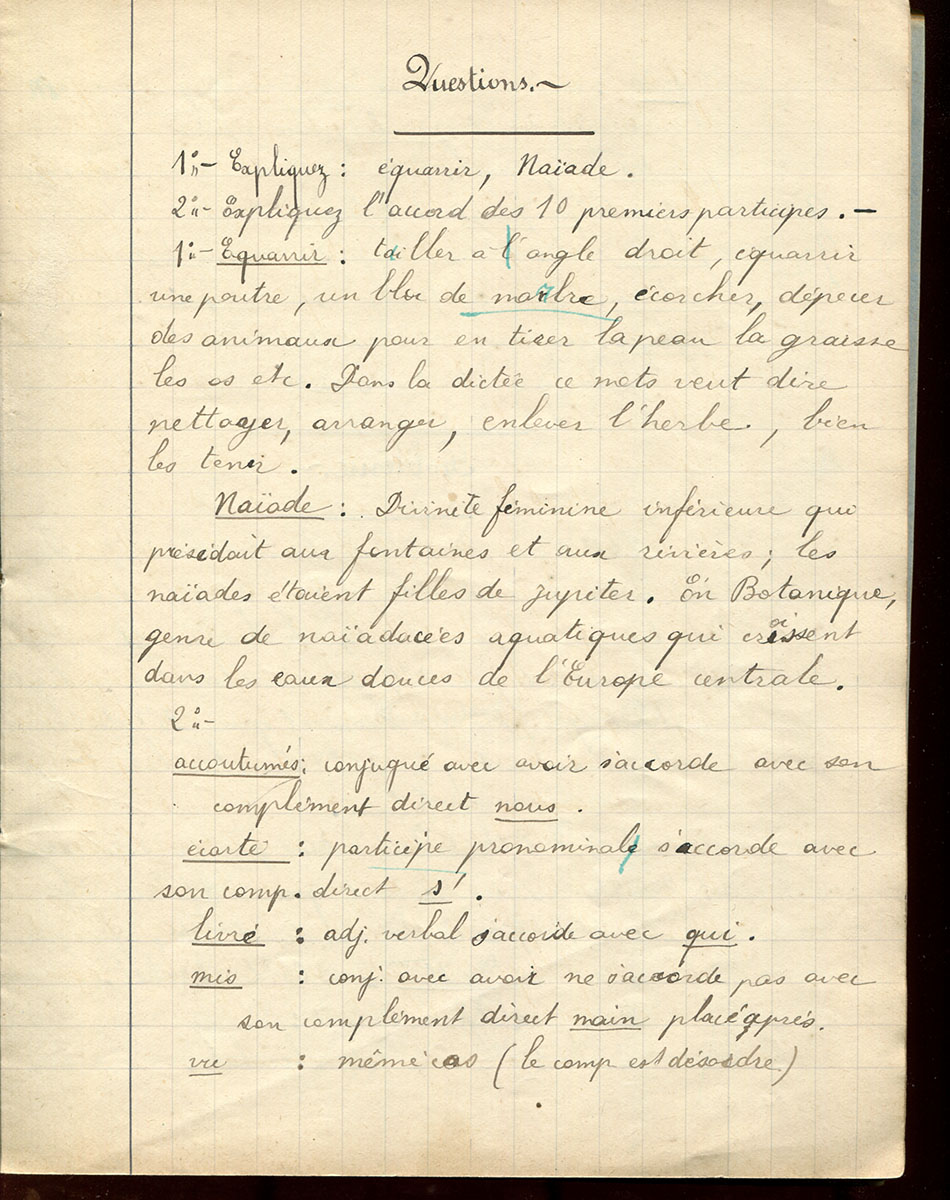 Questions.~
1°- Expliquez : équarrir, Naïade.
2°- Expliquez l'accord des 10 premiers participes. -
1°- Equarrir : tailler à l'angle droit, équarrir
une poutre, un bloc de marbre, écorcher, dépecer
des animaux pour en tirer la peau la graisse
les os etc. Dans la dictée ce mots veut dire
nettoyer, arranger, enlever l'herbe, bien
les tenir.
Naïade : Divinité féminine inférieure qui
présidait aux fontaines et aux rivières ; les
naïades étaient filles de jupiter. En Botanique,
genre de naïadacées aquatiques qui croissent
dans les eaux douces de l'Europe centrale.
2°-
accoutumés : conjugué avec avoir s'accorde avec son
complément direct nous.
écarté : participe pronominale s'accorde avec
son comp. direct s'.
livré : adj. verbal s'accorde avec qui.
mis : conj. avec avoir ne s'accorde pas avec
son complément direct main placé après.
vu : même cas (le comp est désordre)